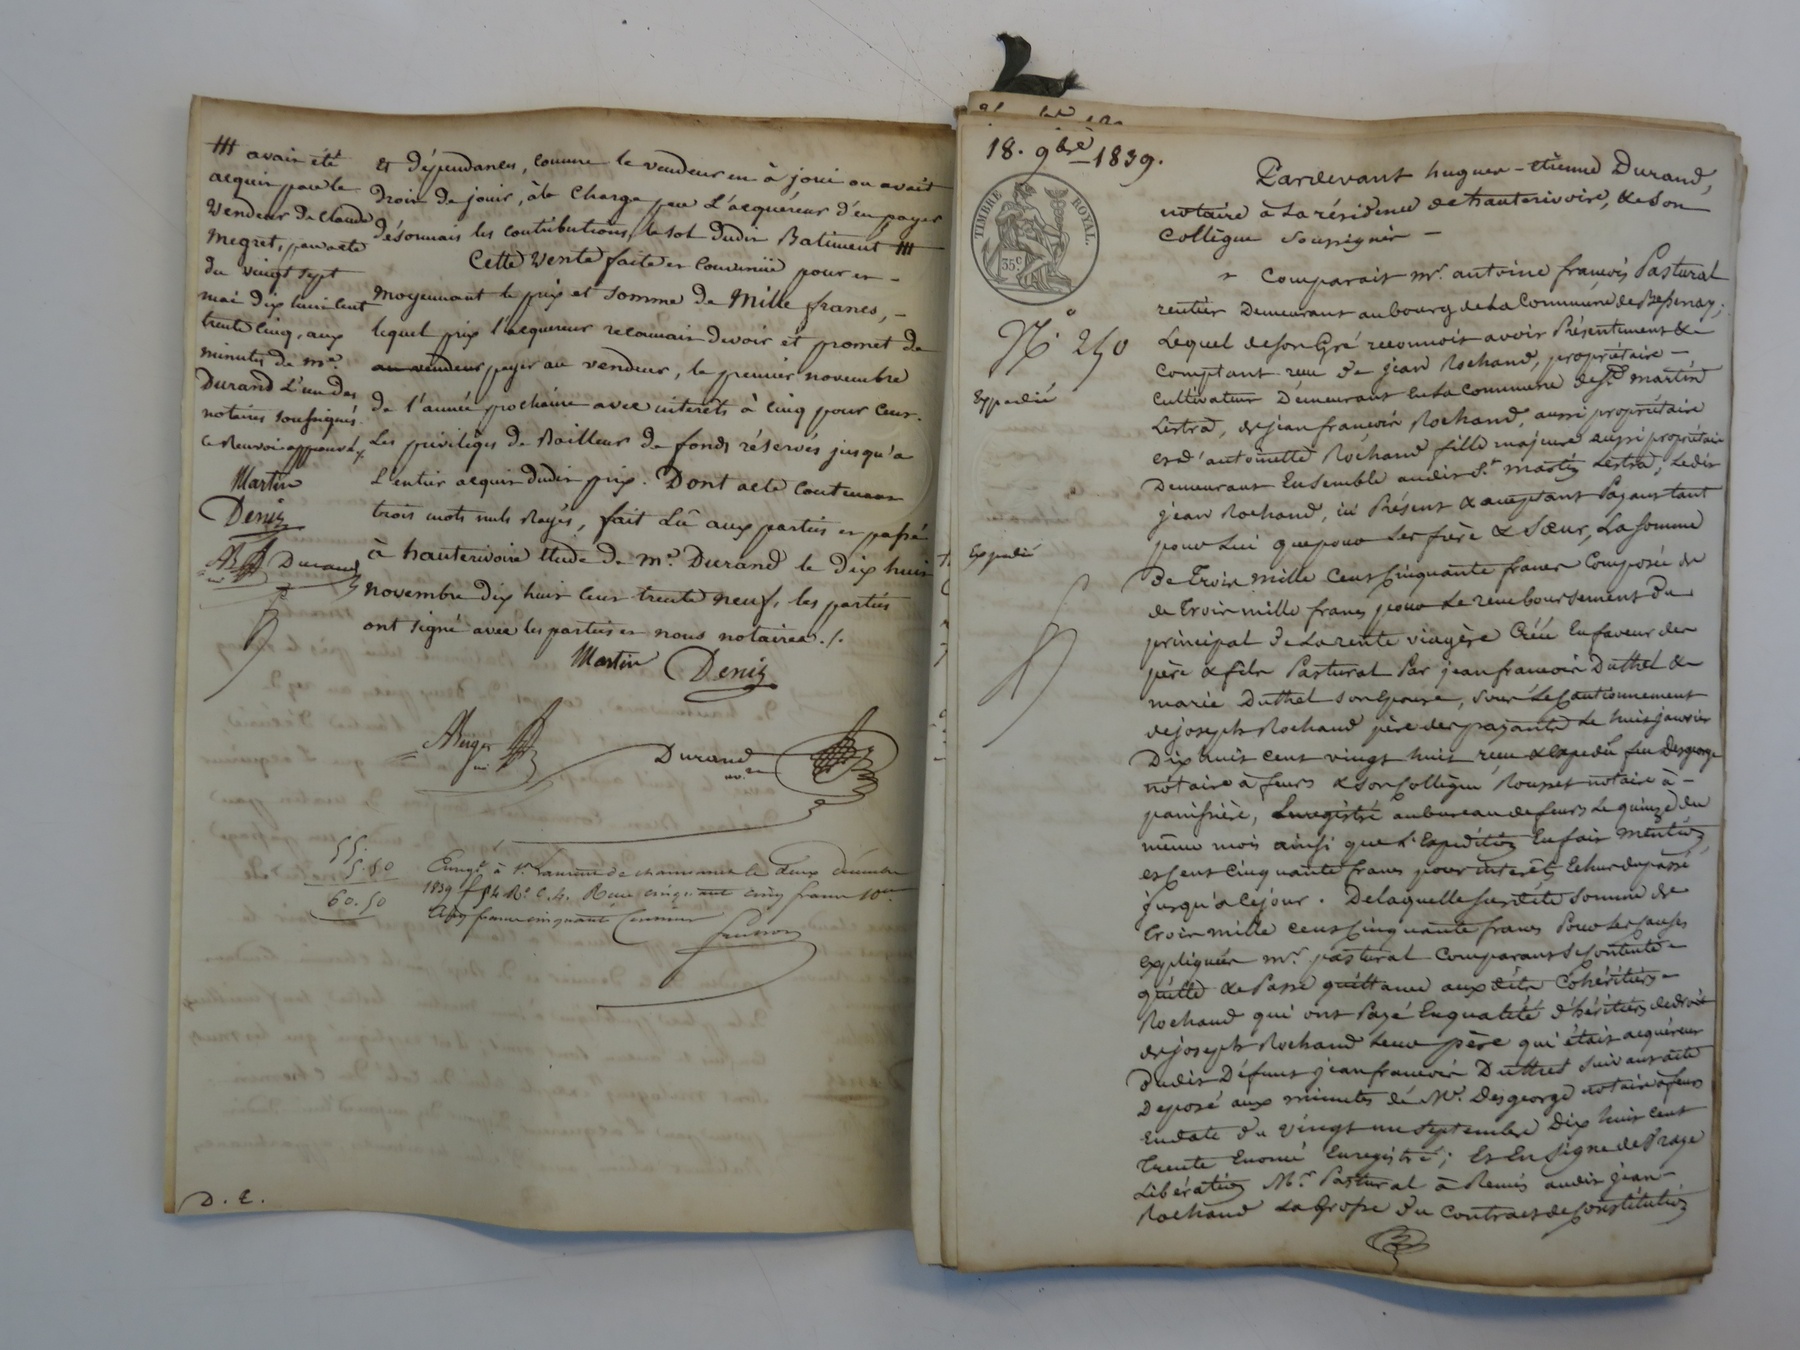 et dépendances, comme le vendeur en à joui ou avait
droit de jouir, à la charge par l'acquéreur d'en payer
désormais les contributions, le sol dudit Batiment ///
Cette vente faite et convenüe pour et -
moyennant le prix et somme de Mille francs, -
lequel prix l'acquereur reconnait devoir et promet de
au vendeur payer au vendeur, le premier novembre
de l'année prochaine avec interets à cinq pour cent.
Les privilèges de Bailleur de fonds réservés jusqu'a
L'entier acquit dudit prix. Dont acte contenant
trois mots nuls Rayés, fait Lû aux parties et passé
à hauterivoire Etude de me. Durand le dix huit
novembre dix huit cent trente neuf, les parties
ont signé avec les parties et nous notaires ./.
/// avait été
acquis par le
Vendeur de claude
Megret, par acte
du vingt sept
mai dix huit cent
trente cinq, aux
minutes de me
Durand L'un des
notaires soussignés.
Ce Renvoi approuvé
Martin
Deniz
Durand
Martin Deniz
Durand
55.
5.50
60.50
Enregé à St Laurent de chamousset le deux décembre
1839 f 54 Ro C. 4. Recu cinquante cinq francs 10me
cinq francs cinquante centimes
D. E.
18. 9bre 1839.
TIMBRE ROYAL
35c
No 250
Expédié
Expédié
Pardevant hugues-etienne Durand,
notaire à La résidence de hauterivoire, & son
Collègue soussignés -
Comparait mr. antoine françois Pastural
rentier Demeurant au bourg de La Commune de Bessenay;
Lequel de son Gré reconnoit avoir Présentement &
comptant reçu de jean Rochand, propriétaire -
cultivateur Demeurant en La Commune de St. martin
Lestra, de jean francois Rochand, aussi propriétaire
et d'antoinette Rochand fille majeure aussi propriétaire
Demeurant Ensemble audit St. martin Lestra; Ledit
jean Rochand, ici Présent & acceptant Payant tant
pour Lui que pour ses frère & sœur, La somme
De Trois mille cent cinquante francs Composée de
de Trois mille francs pour Le remboursement du
principal de La rente viagère Créée En faveur des
père & fils Pastural Par jean francois Duthel &
marie Duthel son Epouse, sous Le Cautionnement
de joseph Rochand père des payants Le huit janvier
Dix huit cent vingt huit reçu & expédié feu Desgeorge
notaire à feurs & son Collègue Rousset notaire à -
panissière, Enregistré au bureau de feurs Le quinze du
même mois ainsi que L'Expédition En fait mention
et cent cinquante francs pour interêts Echus du passé
jusqu'à ce jour. De laquelle susdite somme de
trois mille cent Cinquante francs Pour Les causes
expliquées mr. pastural comparant se contente -
quitte & Passe quittance aux dits Cohéritiers -
Rochand qui ont Payé En qualité d'héritiers de droit
de joseph Rochand Leur père qui était acquéreur
Dudit Défunt jean francois Duthel suivant acte
Deposé aux minutes de Me. Desgeorge notaire à feurs
En date du vingt un septembre Dix huit cent
Trente Enoncé Enregistré; Et En signe de Vraye
Libération Mr. Pastural à Remis audit jean -
Rochand La Grosse du contract de Constitution